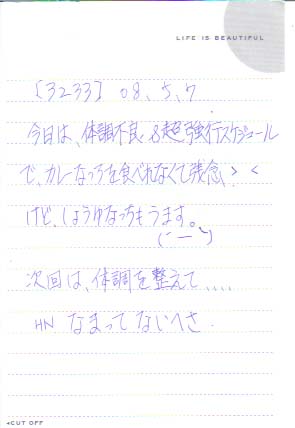 LIFE IS BEAUTIFUL
[3233] 08、5、7
今日は、体調不良&超強行スケジュール
で、カレーなっちを食べれなくて残念＞＜
けど、しょうゆなっちもうます。
(´ー｀)
次回は、体調を整えて.....
HN なまってないべさ
◂CUT OFF